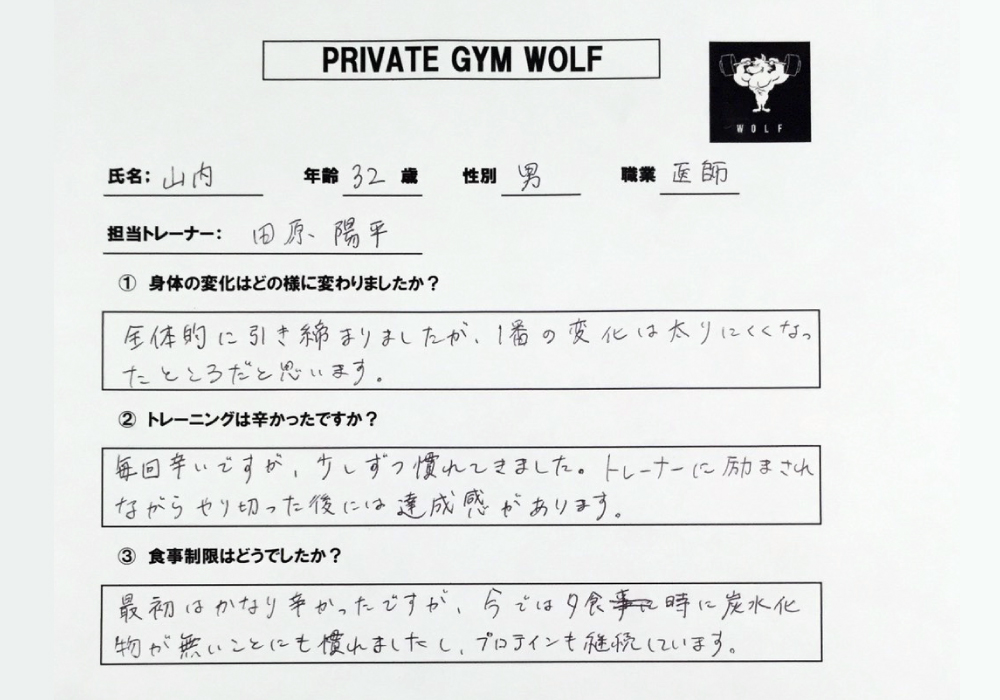 PRIVATE GYM WOLF
WOLF
氏名： 山内 年齢 32 歳 性別 男 職業 医師
担当トレーナー： 田原 陽平
① 身体の変化はどの様に変わりましたか？
全体的に引き締まりましたが、1番の変化は太りにくくなっ
たところだと思います。
② トレーニングは辛かったですか？
毎回辛いですが、少しずつ慣れてきました。トレーナーに励まされ
ながらやり切った後には達成感があります。
③ 食事制限はどうでしたか？
最初はかなり辛かったですが、今では夕食時に炭水化
物が無いことにも慣れましたし、プロテインも継続しています。